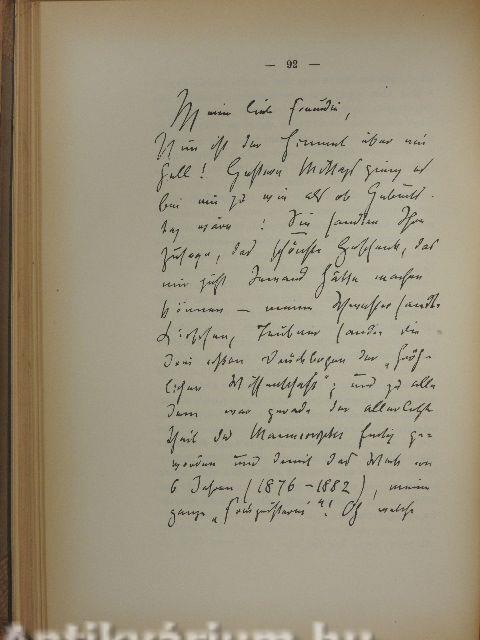 — 92 —
Meine liebe Freundin,
Nun ist der Himmel über mir
hell! Gestern Mittags ging es
bei mir zu wie als ob Geburts-
tag wäre: Sie sandten Ihre
Zusage, das schönste Geschenk, das
mir jetzt Jemand hätte machen
können — meine Schwester sandte
Kirschen, Teubner sandte die
drei ersten Druckbogen der „Fröh-
lichen Wissenschaft"; und zu alle
dem war gerade der allerletzte
Theil des Manuscriptes fertig ge-
worden und damit das Werk von
6 Jahren (1876–1882), meine
ganze „Freigeisterei"! Oh welche
Antikvárium.hu